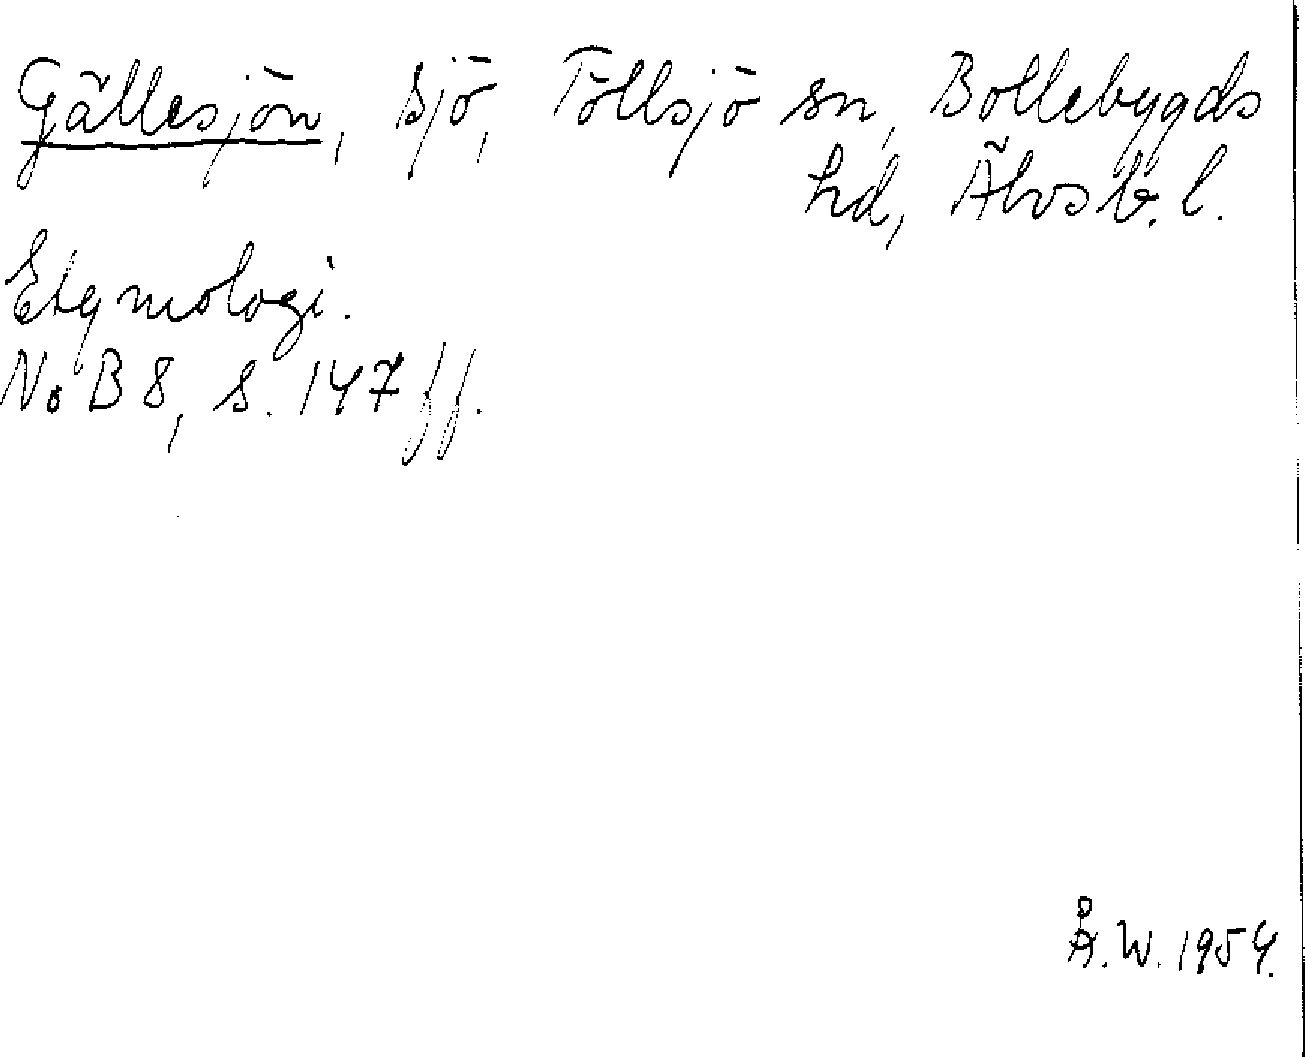 Gällesjön, sjö, Töllsjö sn, Bollebygds
hd, Älvsb. l.
Etymologi.
NoB 8, s. 147 ff.
Å.W. 1954.